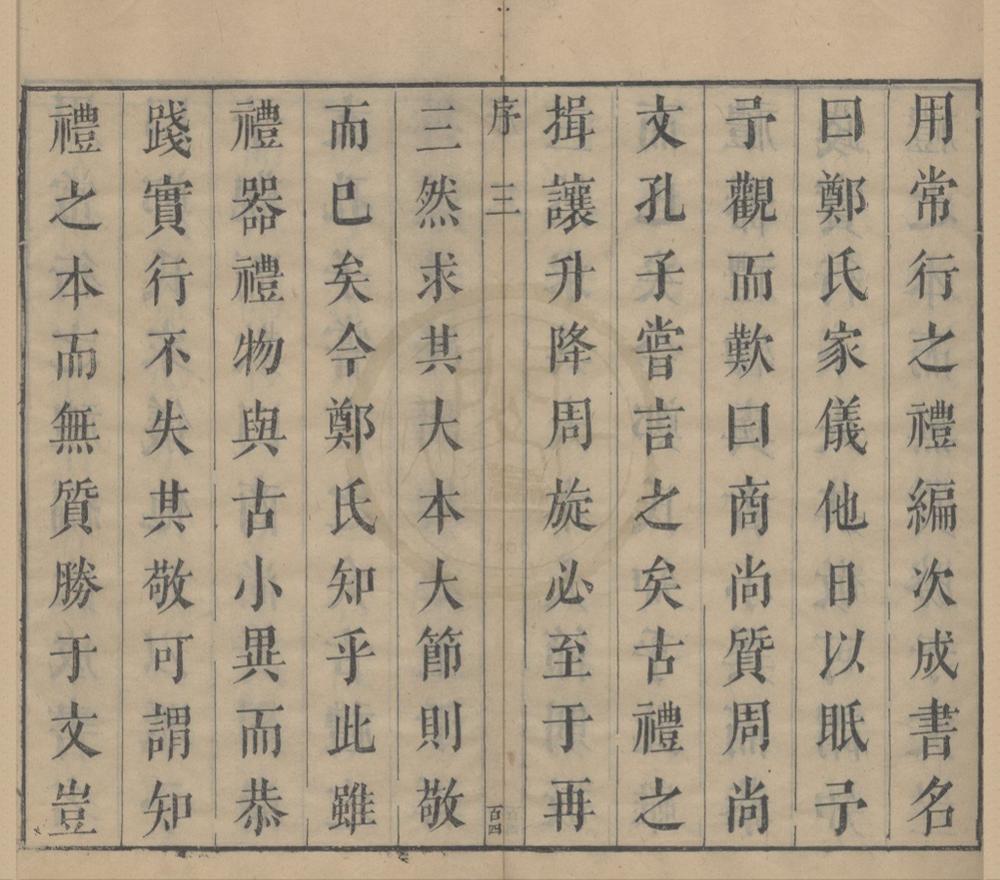 用常行之禮編次成書名
曰鄭氏家儀他日以眡予
予觀而歎曰商尚質周尚
文孔子嘗言之矣古禮之
揖讓升降周旋必至于再
序 三
百四
三然求其大本大節則敬
而已矣今鄭氏知乎此雖
禮器禮物與古小異而恭
踐實行不失其敬可謂知
禮之本而無質勝于文豈